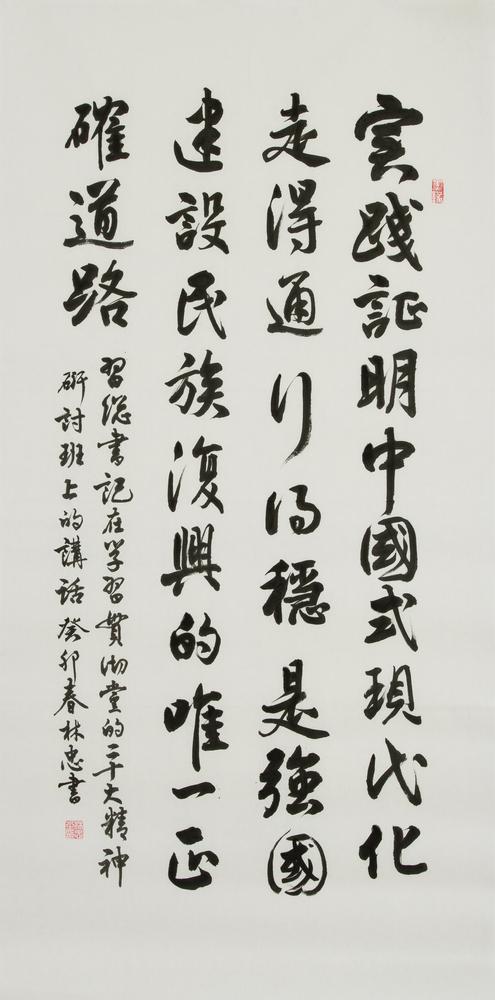 實踐証明中國式現代化
走得通行得穩是強國
建設民族復興的唯一正
確道路
習總書記在学習貫彻党的二十大精神
研討班上的講話癸卯春林忠書